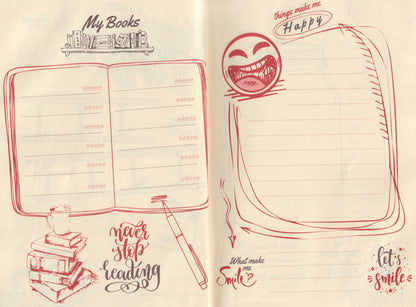 My Books
never
stop
reading
things make me
Happy
What make
me
Smile?
let's
smile